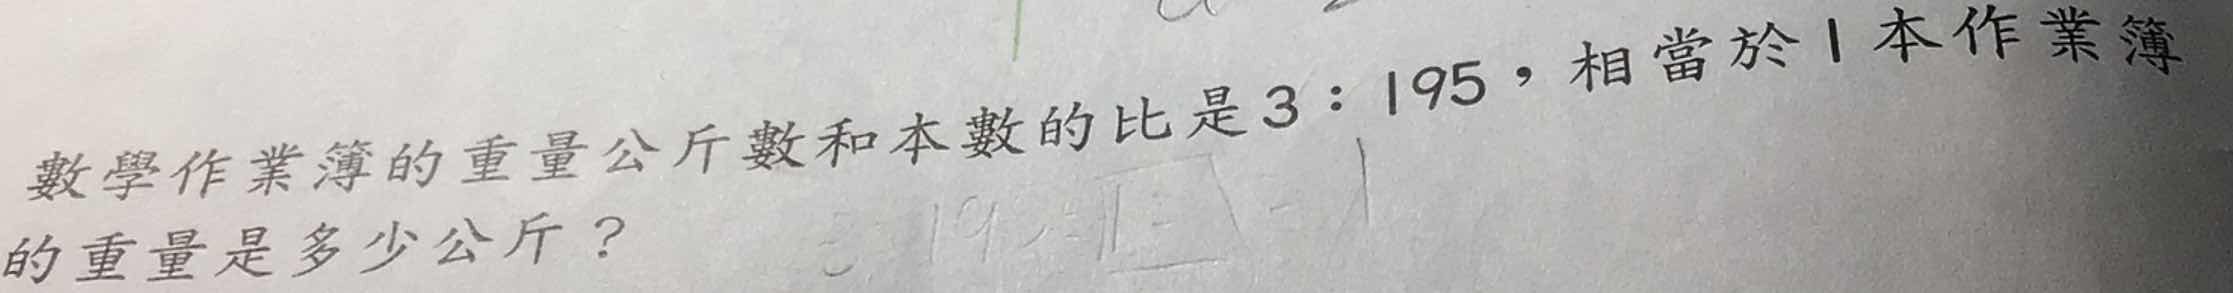 數學作業簿的重量公斤數和本數的比是3：195，相當於1本作業簿
的重量是多少公斤？